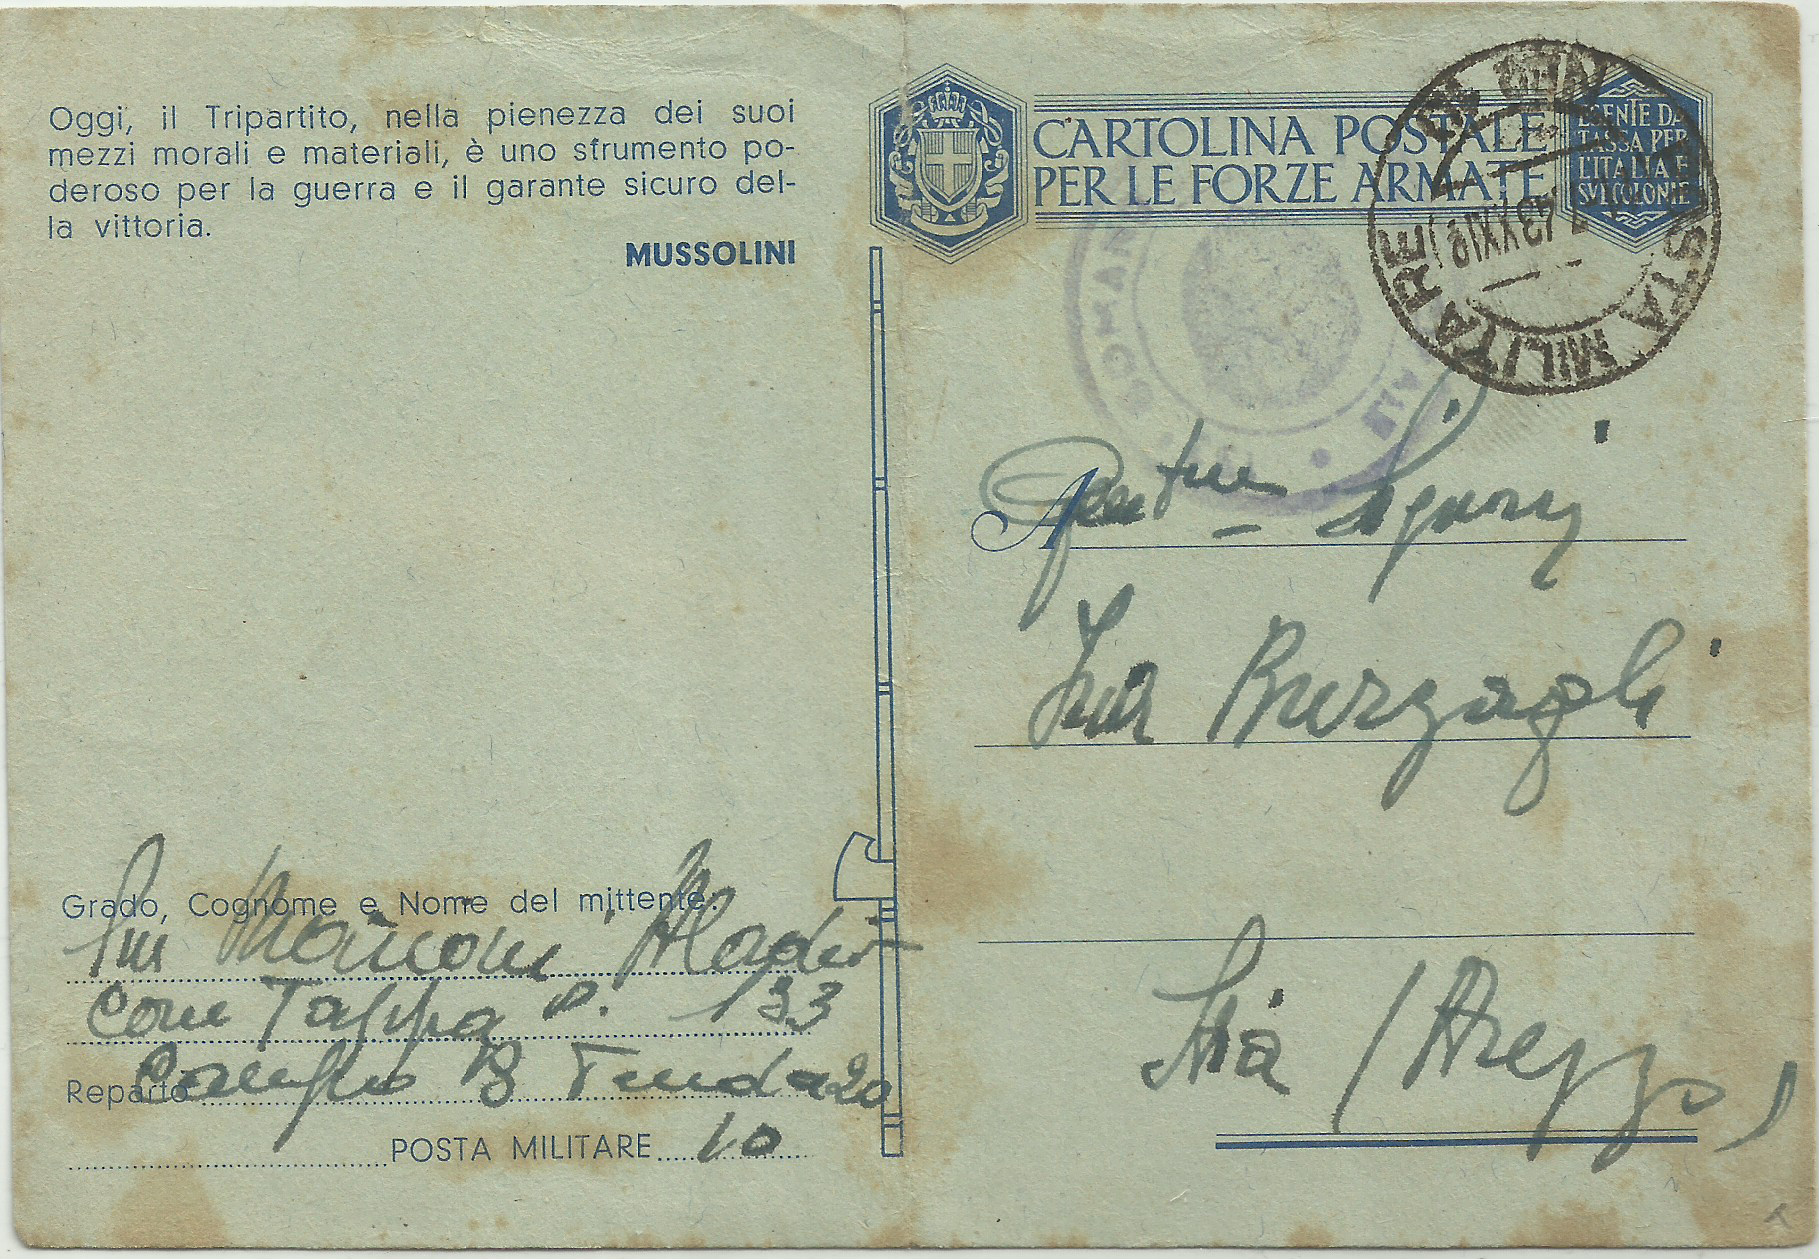 Oggi, il Tripartito, nella pienezza dei suoi
mezzi morali e materiali, è uno strumento po-
deroso per la guerra e il garante sicuro del-
la vittoria.
MUSSOLINI
Grado, Cognome e Nome del mittente:
Com Tappa 133
Campo B Tenda 20
Reparto
POSTA MILITARE 10
CARTOLINA POSTALE
PER LE FORZE ARMATE
ESENTE DA
TASSA PER
L'ITALIA E
SUE COLONIE
POSTA MILITARE
43 XXI
A
Burzagli
Stia (Arezzo)